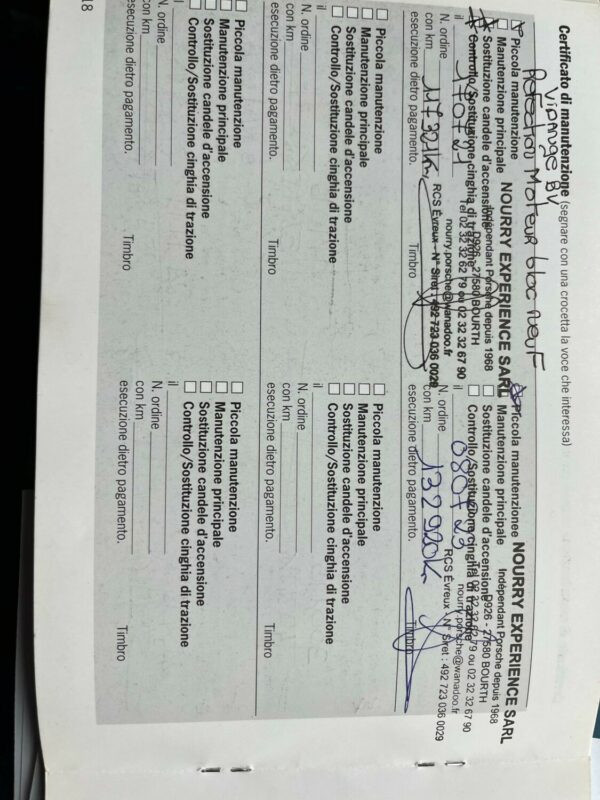 Certificato di manutenzione (segnare con una crocetta la voce che interessa)
Vidange BV
Réfection Moteur bloc neuf
Piccola manutenzione
Manutenzione principale
Sostituzione candele d'accensione
Controllo/Sostituzione cinghia di trazione
NOURRY EXPERIENCE SARL
Indépendant Porsche depuis 1968
D926 - 27580 BOURTH
Tel 02 32 32 62 79 ou 02 32 32 67 90
nourry.porsche@wanadoo.fr
RCS Évreux - N° Siret : 492 723 036 0029
il 170721
N. ordine
con km 117321km
esecuzione dietro pagamento.
Timbro
Piccola manutenzione
Manutenzione principale
Sostituzione candele d'accensione
Controllo/Sostituzione cinghia di trazione
NOURRY EXPERIENCE SARL
Indépendant Porsche depuis 1968
D926 - 27580 BOURTH
Tel 02 32 32 62 79 ou 02 32 32 67 90
nourry.porsche@wanadoo.fr
RCS Évreux - N° Siret : 492 723 036 0029
il 080723
N. ordine
con km 132920km
esecuzione dietro pagamento.
Timbro
Piccola manutenzione
Manutenzione principale
Sostituzione candele d'accensione
Controllo/Sostituzione cinghia di trazione
il
N. ordine
con km
esecuzione dietro pagamento.
Timbro
Piccola manutenzione
Manutenzione principale
Sostituzione candele d'accensione
Controllo/Sostituzione cinghia di trazione
il
N. ordine
con km
esecuzione dietro pagamento.
Timbro
Piccola manutenzione
Manutenzione principale
Sostituzione candele d'accensione
Controllo/Sostituzione cinghia di trazione
il
N. ordine
con km
esecuzione dietro pagamento.
Timbro
Piccola manutenzione
Manutenzione principale
Sostituzione candele d'accensione
Controllo/Sostituzione cinghia di trazione
il
N. ordine
con km
esecuzione dietro pagamento.
Timbro
18